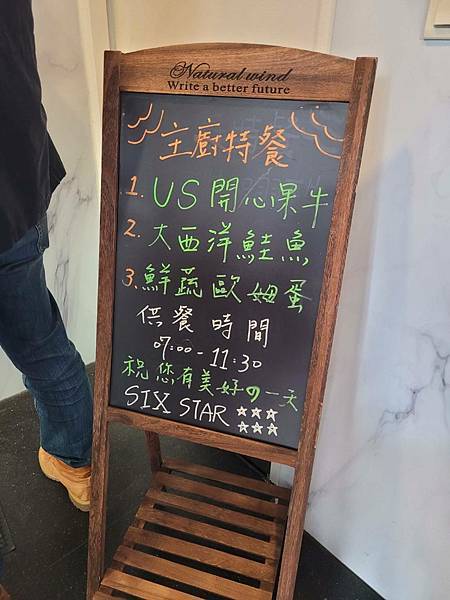 Natural wind
Write a better future
主廚特餐
1. US開心果牛
2. 大西洋鮭魚
3. 鮮蔬歐姆蛋
供餐時間
07:00-11:30
祝您有美好の一天
SIX STAR ☆☆☆
☆☆☆